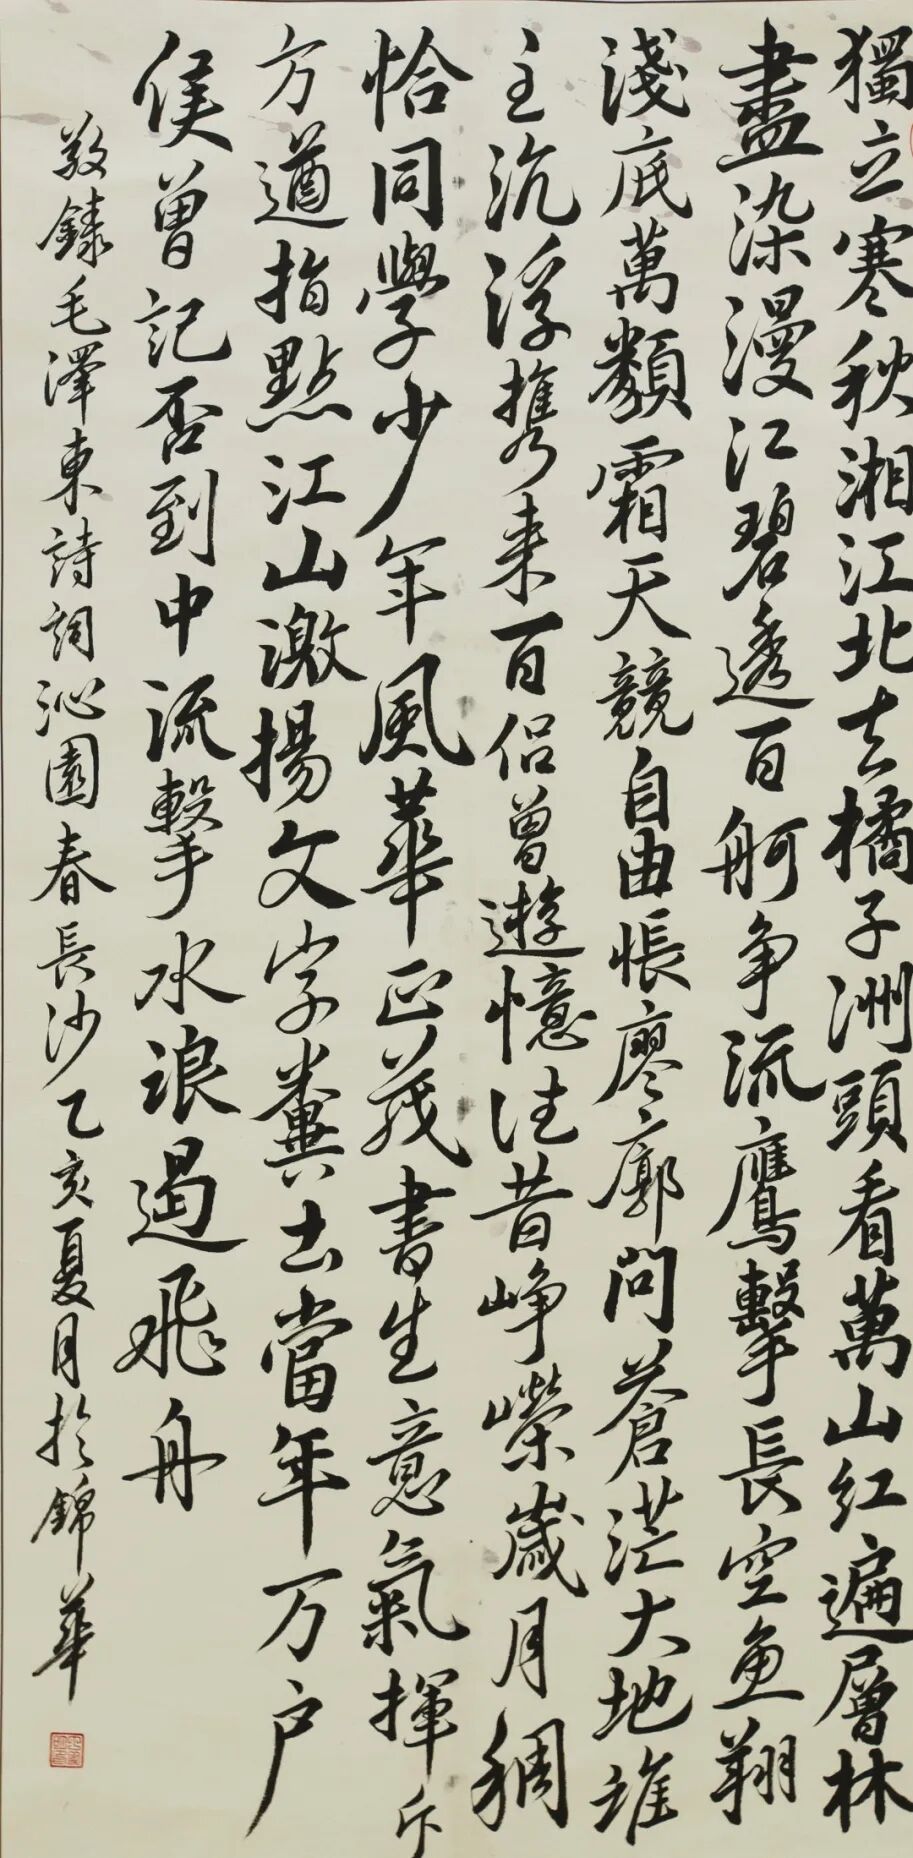 獨立寒秋湘江北去橘子洲頭看萬山紅遍層林
盡染漫江碧透百舸争流鷹擊長空魚翔
淺底萬類霜天競自由悵廖廓問蒼茫大地誰
主沉浮携来百侣曾遊憶往昔峥嶸歲月稠
恰同學少年風華正茂書生意氣揮斥
方遒指點江山激揚文字糞土當年万户
侯曾記否到中流擊水浪遏飛舟
敬錄毛澤東詩詞沁園春長沙乙亥夏月於錦華